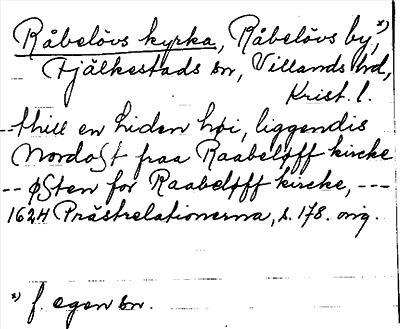 Råbelövs kyrka, Råbelövs by,*)
Fjälkestads sn, Villands hd,
Krist. l.
-- thill en liden høi, liggendis
Nordost fraa Raabeløff kircke
-- østen for Raabeløff kircke, ---
1624 Prästrelationerna, s. 178. orig.
*) f. egen sn.